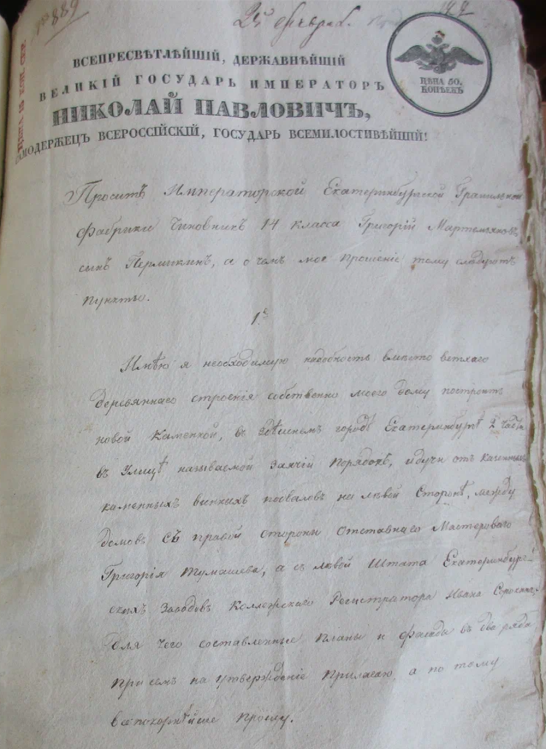 № 889
2й февраля
ЦѢНА 50. КОПѢЕКЪ
ВСЕПРЕСВѢТЛѢЙШІЙ, ДЕРЖАВНѢЙШІЙ
ВЕЛИКІЙ ГОСУДАРЬ ИМПЕРАТОРЪ
НИКОЛАЙ ПАВЛОВИЧЪ,
МОДЕРЖЕЦЪ ВСЕРОССІЙСКІЙ, ГОСУДАРЬ ВСЕМИЛОСТИВѢЙШІЙ!
Проситъ Императорской Екатеринбургской Гранильной
Фабрики Чиновникъ 14 класса Григорій Мартемьяновъ
сынъ Пермикинъ, а о чемъ мое прошеніе тому слѣдуютъ
пункты.
1.е
Имѣю я необходимую надобность вмѣсто ветхаго
деревяннаго строенія собственно моего дому построить
новой Каменной, въ здѣшнемъ городѣ Екатеринбургѣ 2 части
въ Улицѣ называемой Заячій Порядокъ, идучи отъ
каменныхъ на лѣвой Сторонѣ, между
домовъ съ правой стороны Отставнаго Мастероваго
Григорія Тумашева, а съ лѣвой Штата Екатеринбург-
скихъ Заводовъ Коллежскаго Регистратора Ивана
для чего составленные планы и фасады въ два ряда
при семъ на утвержденіе прилагаю, а по тому
всепокорнѣйше прошу.